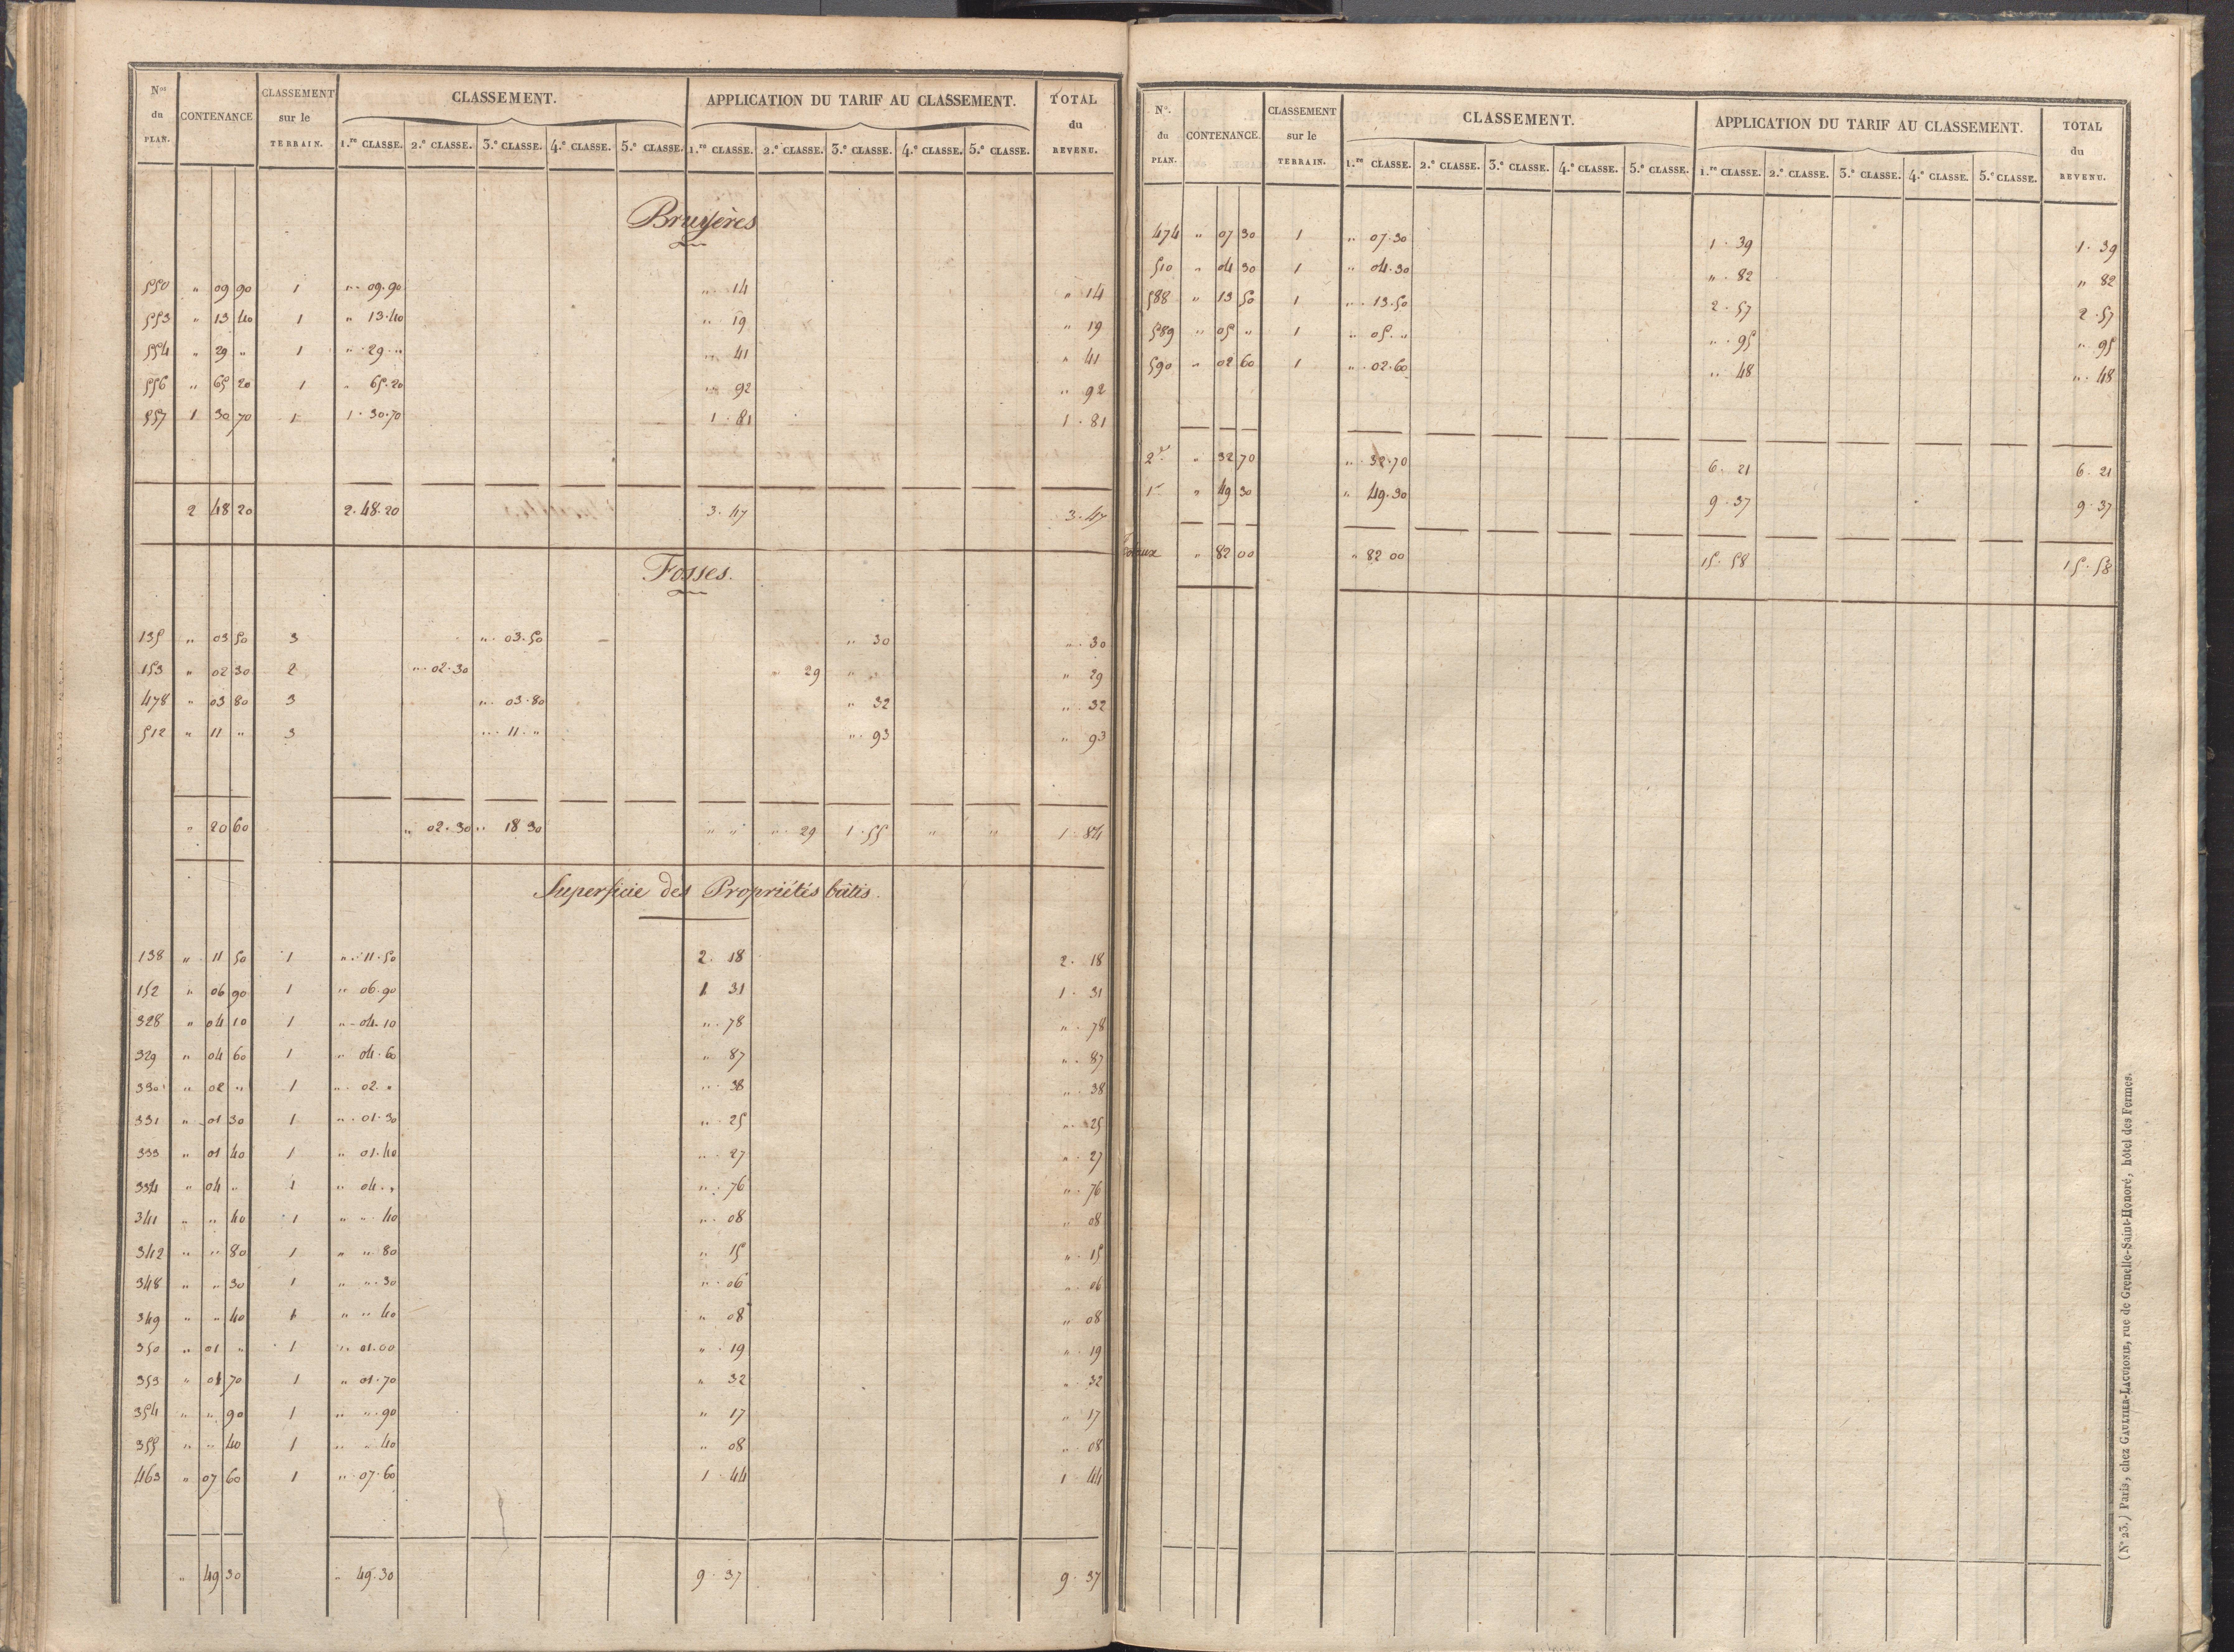 Nos du PLAN. CONTENANCE CLASSEMENT sur le TERRAIN. CLASSEMENT. APPLICATION DU TARIF AU CLASSEMENT. TOTAL du REVENU.
1.re CLASSE. 2.e CLASSE. 3.e CLASSE. 4.e CLASSE. 5.e CLASSE. 1.re CLASSE. 2.e CLASSE. 3.e CLASSE. 4.e CLASSE. 5.e CLASSE.
Bruyères
550 " 09 90 1 " 09.90 " 14 " 14
553 " 13 40 1 " 13.40 " 19 " 19
554 " 29 " 1 " 29 " " 41 " 41
556 " 65 20 1 " 65.20 " 92 " 92
557 1 30 70 1 1.30.70 1.81 1.81
2 48 20 2.48.20 3.47 3.47
Fosses.
135 " 03 50 3 " 03.50 " 30 " 30
153 " 02 30 2 " 02.30 " 29 " " " 29
478 " 03 80 3 " 03.80 " 32 " 32
512 " 11 " 3 " 11 " " 93 " 93
" 20 60 " 02.30 " 18 30 " " " 29 1.55 " " 1.84
Superficie des Propriétés bâtis.
138 " 11 50 1 " 11.50 2.18 2.18
152 " 06 90 1 " 06.90 1 31 1.31
328 " 04 10 1 " 04.10 " 78 " 78
329 " 04 60 1 " 04.60 " 87 " 87
330 " 02 " 1 " 02 " " 38 " 38
331 " 01 30 1 " 01.30 " 25 " 25
333 " 01 40 1 " 01.40 " 27 " 27
334 " 04 " 1 " 04 " " 76 " 76
341 " " 40 1 " " 40 " 08 " 08
342 " " 80 1 " " 80 " 15 " 15
348 " " 30 1 " " 30 " 06 " 06
349 " " 40 1 " " 40 " 08 " 08
350 " 01 " 1 " 01.00 " 19 " 19
353 " 01 70 1 " 01.70 " 32 " 32
354 " " 90 1 " " 90 " 17 " 17
355 " " 40 1 " " 40 " 08 " 08
463 " 07 60 1 " 07.60 1.44 1.44
" 49 30 " 49.30 9.37 9.37
Nos. du PLAN. CONTENANCE. CLASSEMENT sur le TERRAIN. CLASSEMENT. APPLICATION DU TARIF AU CLASSEMENT. TOTAL du REVENU.
1.re CLASSE. 2.e CLASSE. 3.e CLASSE. 4.e CLASSE. 5.e CLASSE. 1.re CLASSE. 2.e CLASSE. 3.e CLASSE. 4.e CLASSE. 5.e CLASSE.
474 " 07 30 1 " 07.30 1.39 1.39
510 " 04 30 1 " 04.30 " 82 " 82
588 " 13 50 1 " 13.50 2.57 2.57
589 " 05 " 1 " 05 " " 95 " 95
590 " 02 60 1 " 02.60 " 48 " 48
2e " 32 70 " 32.70 6.21 6.21
1re " 49 30 " 49.30 9.37 9.37
Totaux " 82 00 " 82 00 15.58 15.58
(No 23.) Paris, chez GAULTIER-LAGUIONIE, rue de Grenelle-Saint-Honoré, hôtel des Fermes.